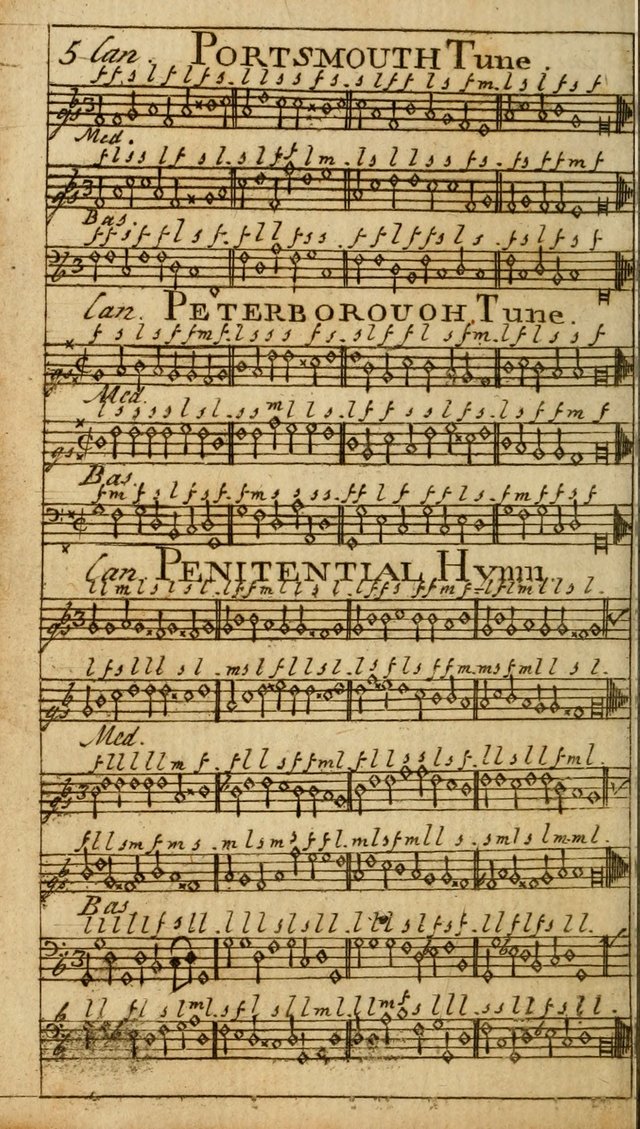 5 Can. PORTSMOUTH Tune.
f f s l f l s l s s f s f f l s f m l s f s f
Med.
f l s s l f s l s l f f l m l s f l l s s f s f f f m f
Bas.
f f s f f l s f f l l f s s f f l f f f s l s f s f f s f
Can. PETERBOROUOH Tune.
f s l s f f m f l s s s f s l f f l s f m l f l s f
Med.
l s s s s l s l s s m l l s l f f s s l f s l s f f m f
Bas.
f m f s l f s f f m s s s s f f l f f f l s f m f f s f
Can. PENITENTIAL Hymn.
l l m l s l s l l f f m l l s l f f s f f m f l f l m l l s l
l f s l l l s l m s l f l l l s l s f l s f f m m s f m l l s l
Med.
f l l l l l m f f l l s f f m l f l l s s l s f l l s l l f m l
f l l s m f m s m l s m s f f l m l s f m l l s s m l s l m m l
Bas
l l l l l f s l l l l l s l l l l l s l f s l l l s l f s l l
l l f l s l m l s f l s l l m l l l m f s l l l s s l l f l l